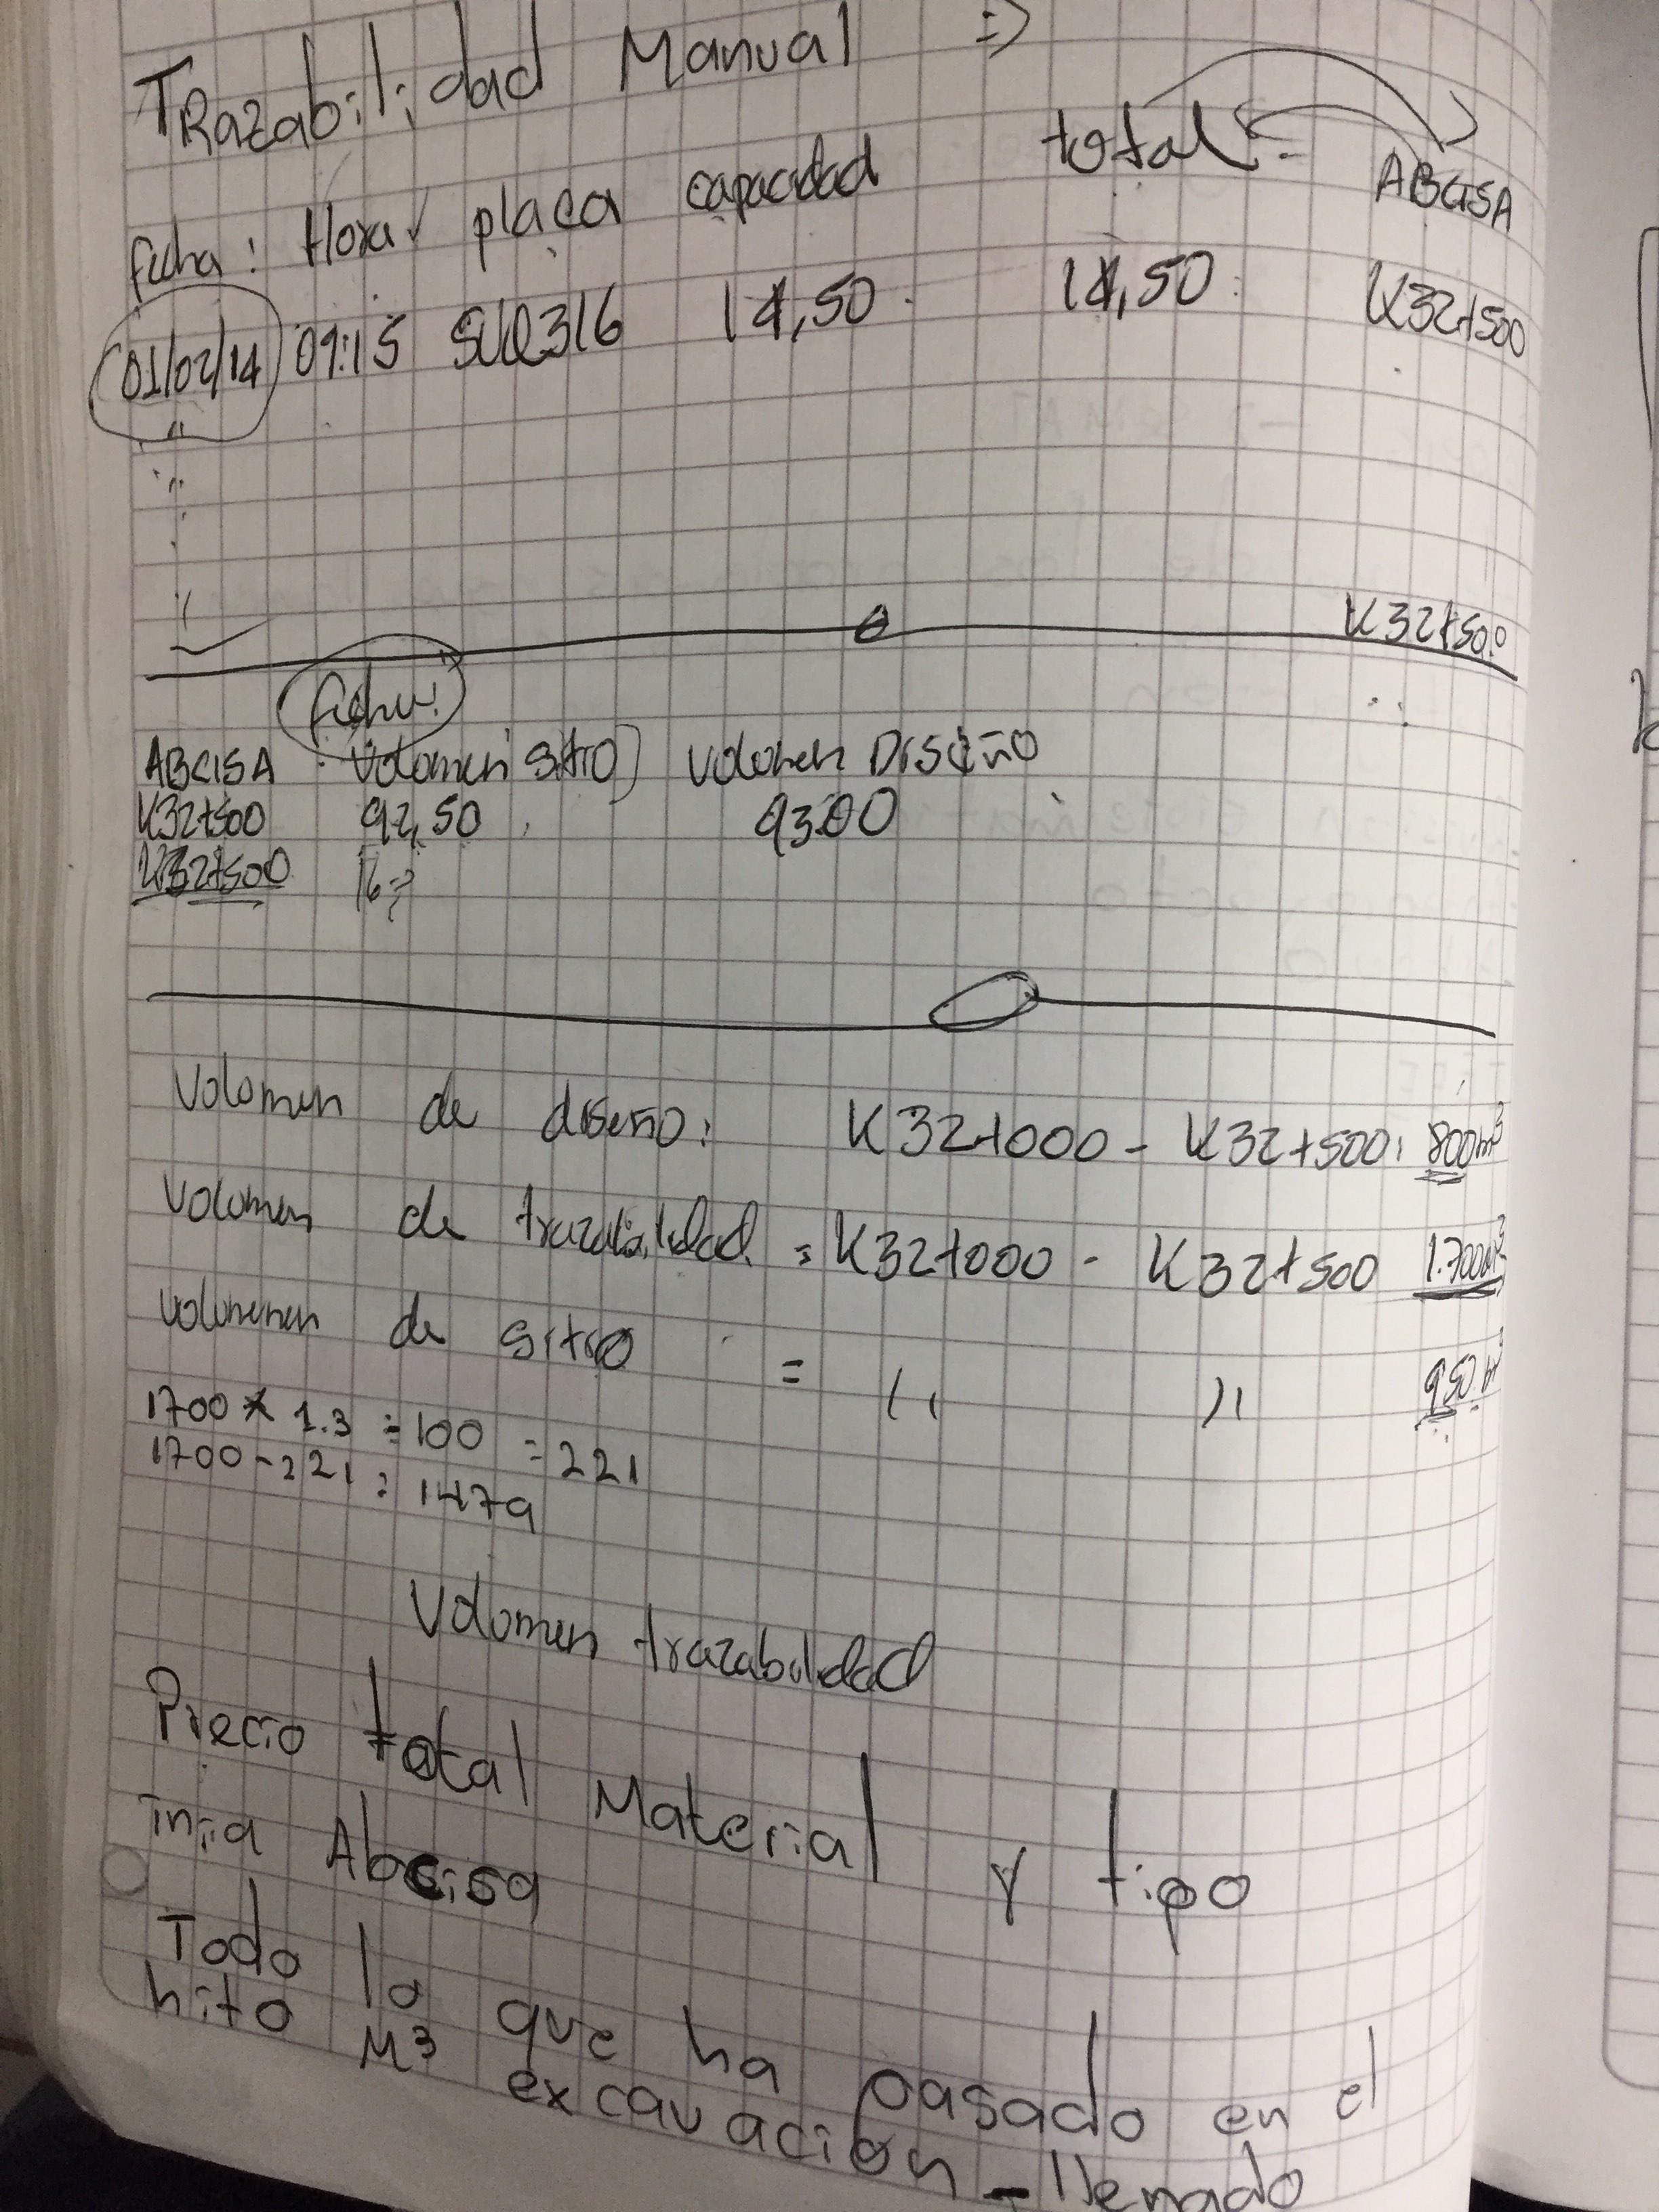 TRazabilidad Manual =>
fecha: Hora placa capacidad total ABCISA
01/02/14 09:15 SUQ316 14,50 14,50 K32+500
"
"
K32+500
fecha:
ABCISA Volumen sitio volumen Diseño
K32+500 92,50 9300
K32+500
Volomen de diseño: K32+000 - K32+500: 800m³
Volomen de trazabilidad = K32+000 - K32+500 1.700m³
Volumenen de sitio = " " 950m³
1700 * 1.3 ÷ 100 = 221
1700 - 221 = 1479
Volomen trazabilidad
Precio total Material y tipo
Abcisa
Todo lo que ha pasado en el
hito M3 excavación - llenado